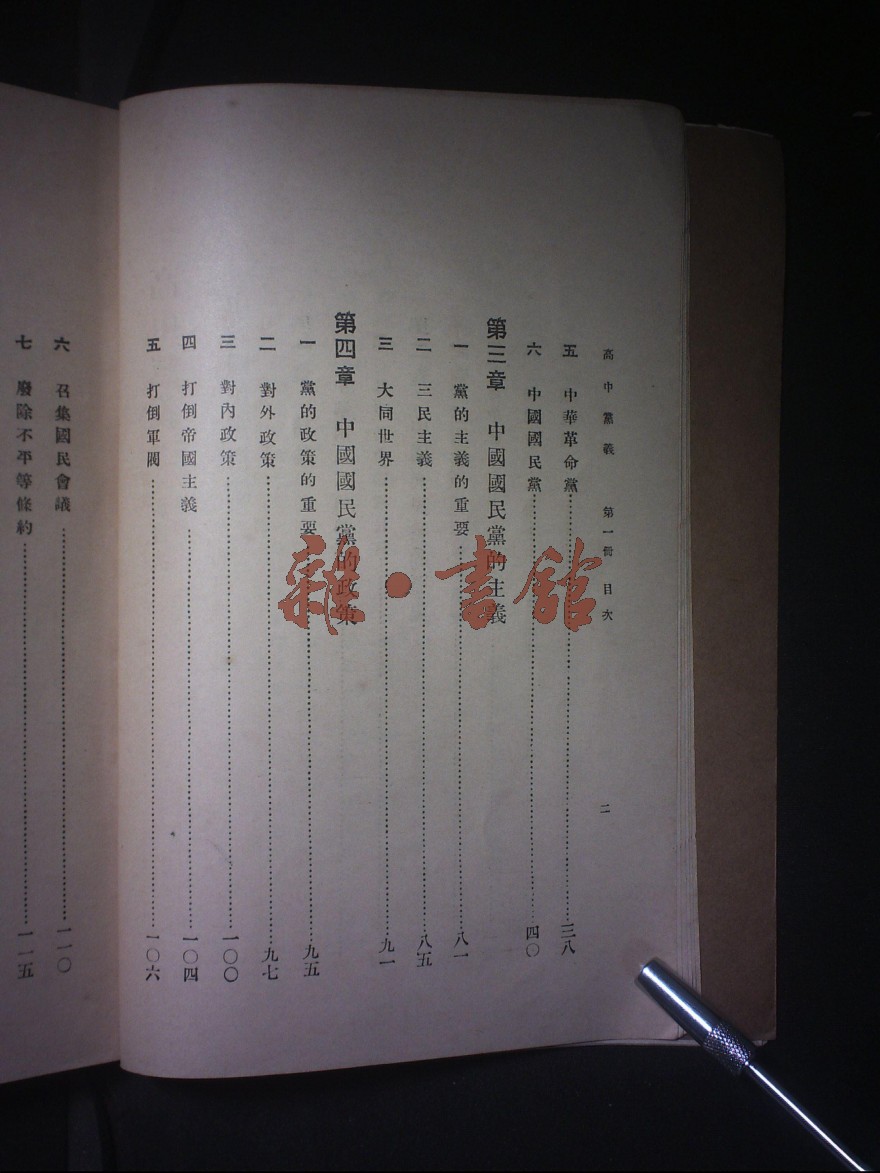 高中黨義 第一冊 目次 二
五 中華革命黨……三八
六 中國國民黨……四〇
第三章 中國國民黨的主義
一 黨的主義的重要……八一
二 三民主義……八五
三 大同世界……九一
第四章 中國國民黨的政策
一 黨的政策的重要……九五
二 對外政策……九七
三 對內政策……一〇〇
四 打倒帝國主義……一〇四
五 打倒軍閥……一〇六
六 召集國民會議……一一〇
七 廢除不平等條約……一一五
雜·書館